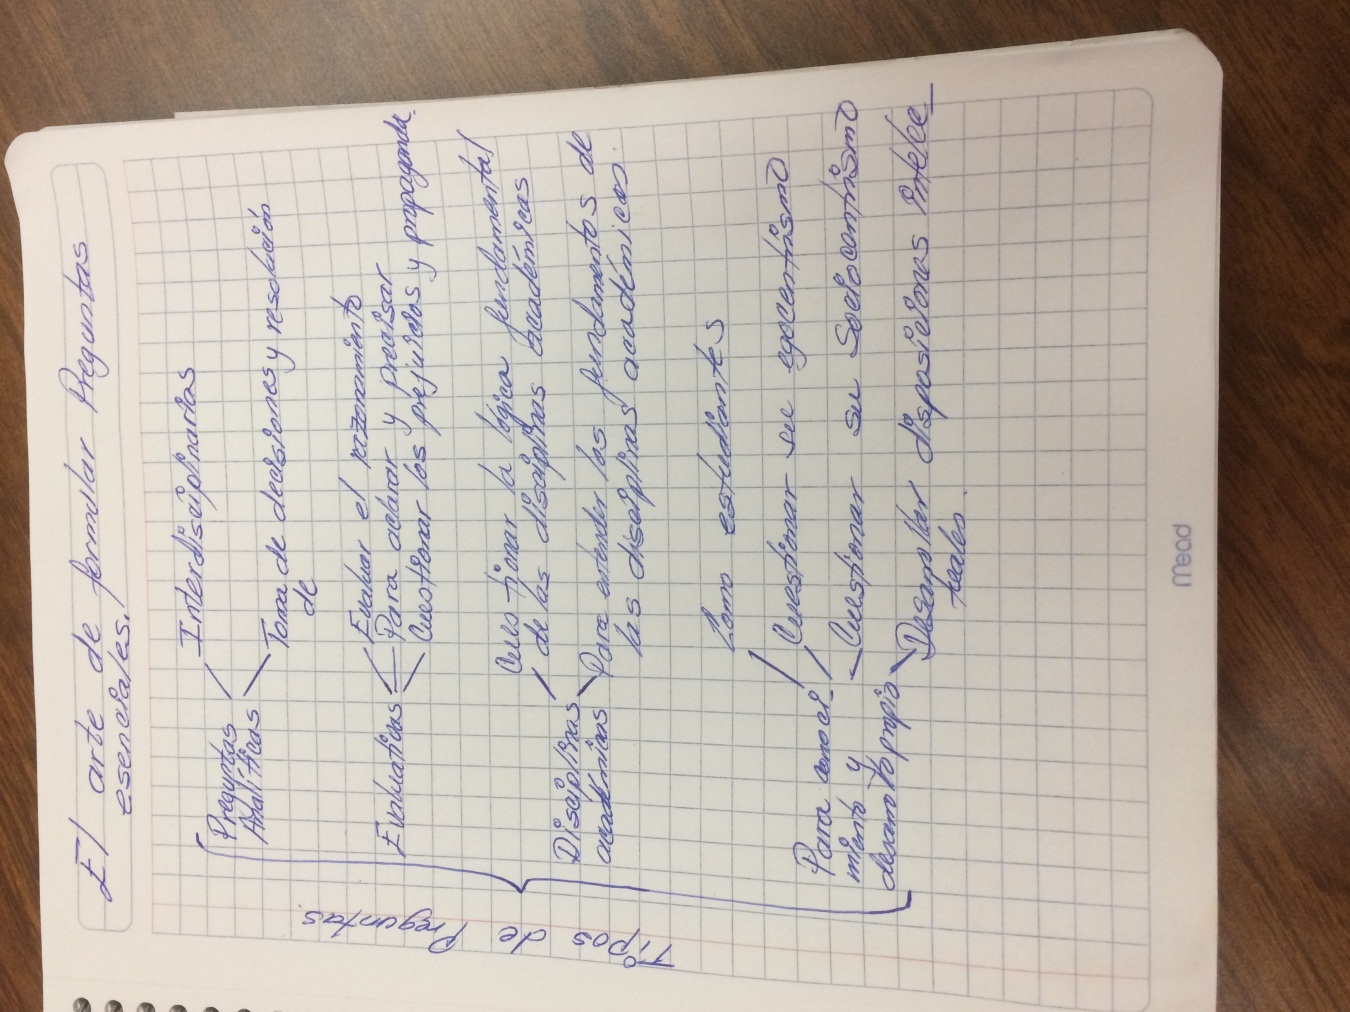 El arte de formular Preguntas
esenciales.
Tipos de Preguntas
Preguntas
Analíticas
Interdisciplinarias
Toma de decisiones y resolución
de
Evaluativas
Evaluar el razonamiento
Para aclarar y precisar
Cuestionar los prejuicios y propaganda.
Disciplinas
académicas
Cuestionar la lógica fundamental
de las disciplinas académicas
Para entender los fundamentos de
las disciplinas académicas.
Para conoci_
miento y
desarrollo propio
Como estudiantes
Cuestionar su egocentrismo
Cuestionar su Sociocentrismo
Desarrollar disposiciones intelec_
tuales.
Mead